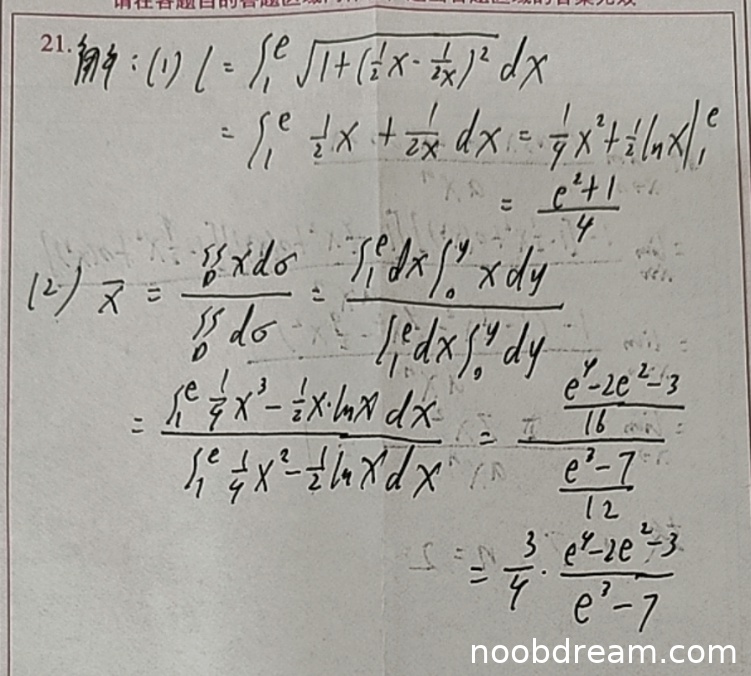 21. 解：(1) l = ∫₁^e √(1+(½x - 1/(2x))²) dx
= ∫₁^e ½x + 1/(2x) dx = ¼x² + ½lnx |₁^e
= (e²+1)/4
(2) x̄ = ∬_D xdσ / ∬_D dσ = ∫₁^e dx ∫₀^y x dy / ∫₁^e dx ∫₀^y dy
= ∫₁^e ¼x³ - ½x·lnx dx / ∫₁^e ¼x² - ½lnx dx = ((e⁴-2e²-3)/16) / ((e³-7)/12)
= 3/4 · (e⁴-2e²-3)/(e³-7)
noobdream.com